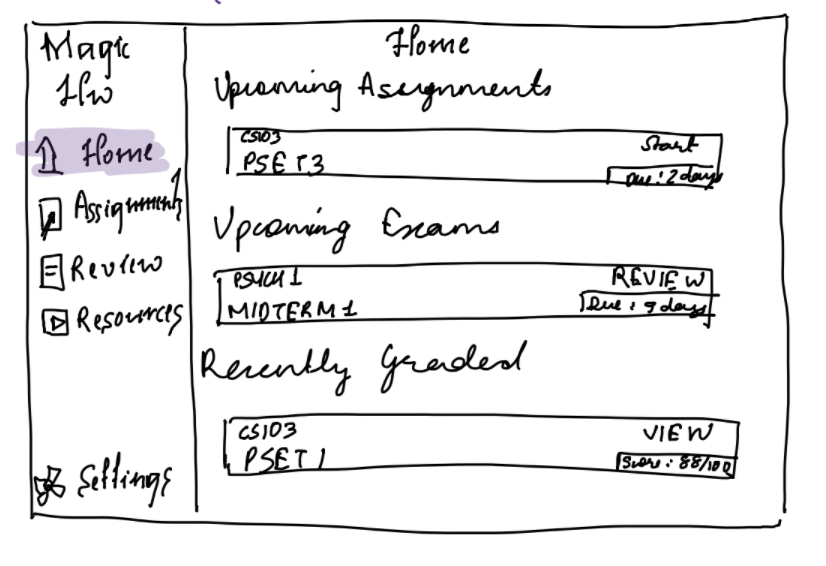 Magic
Hw
Home
Assignments
Review
Resources
Settings
Home
Upcoming Assignments
CS103
Start
PSET3
Due: 2 days
Upcoming Exams
PSYCH 1
REVIEW
MIDTERM 1
Due: 9 days
Recently Graded
CS103
VIEW
PSET 1
Score: 88/100